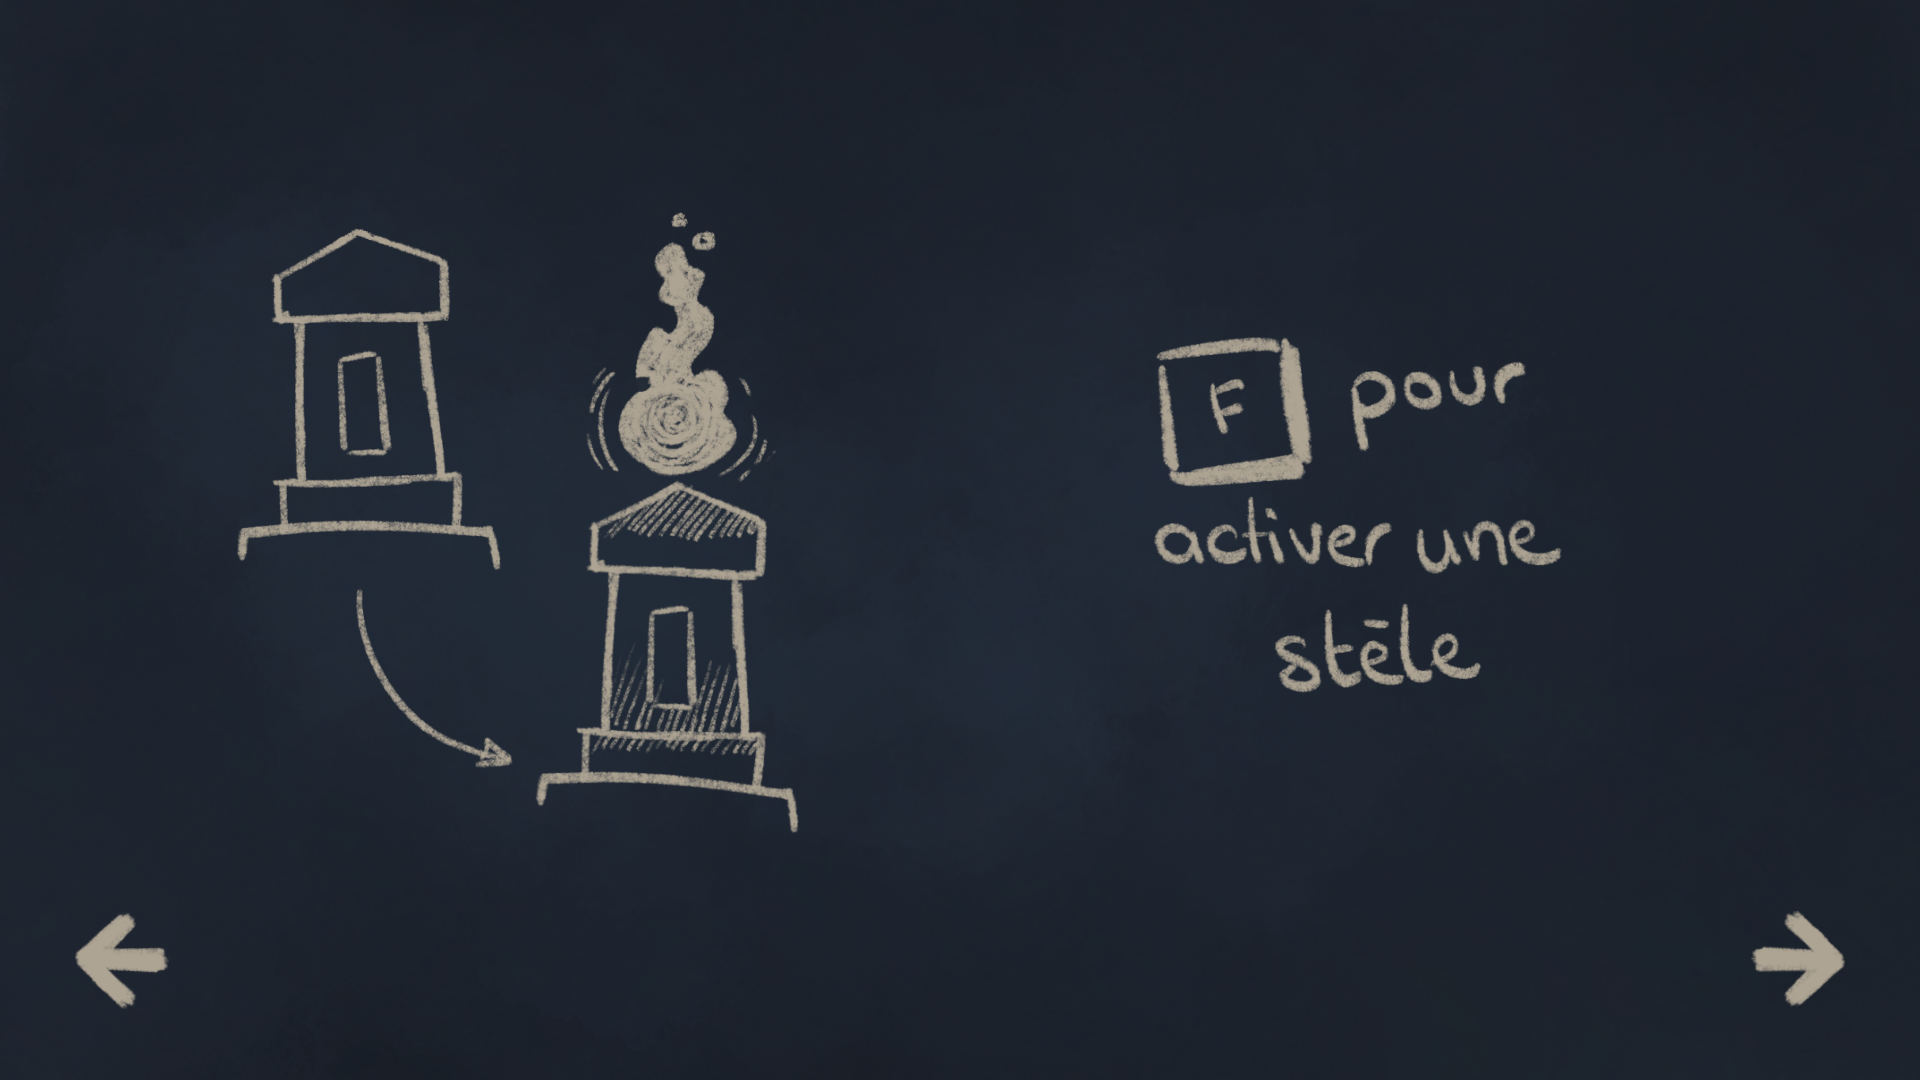 F pour
activer une
stēle